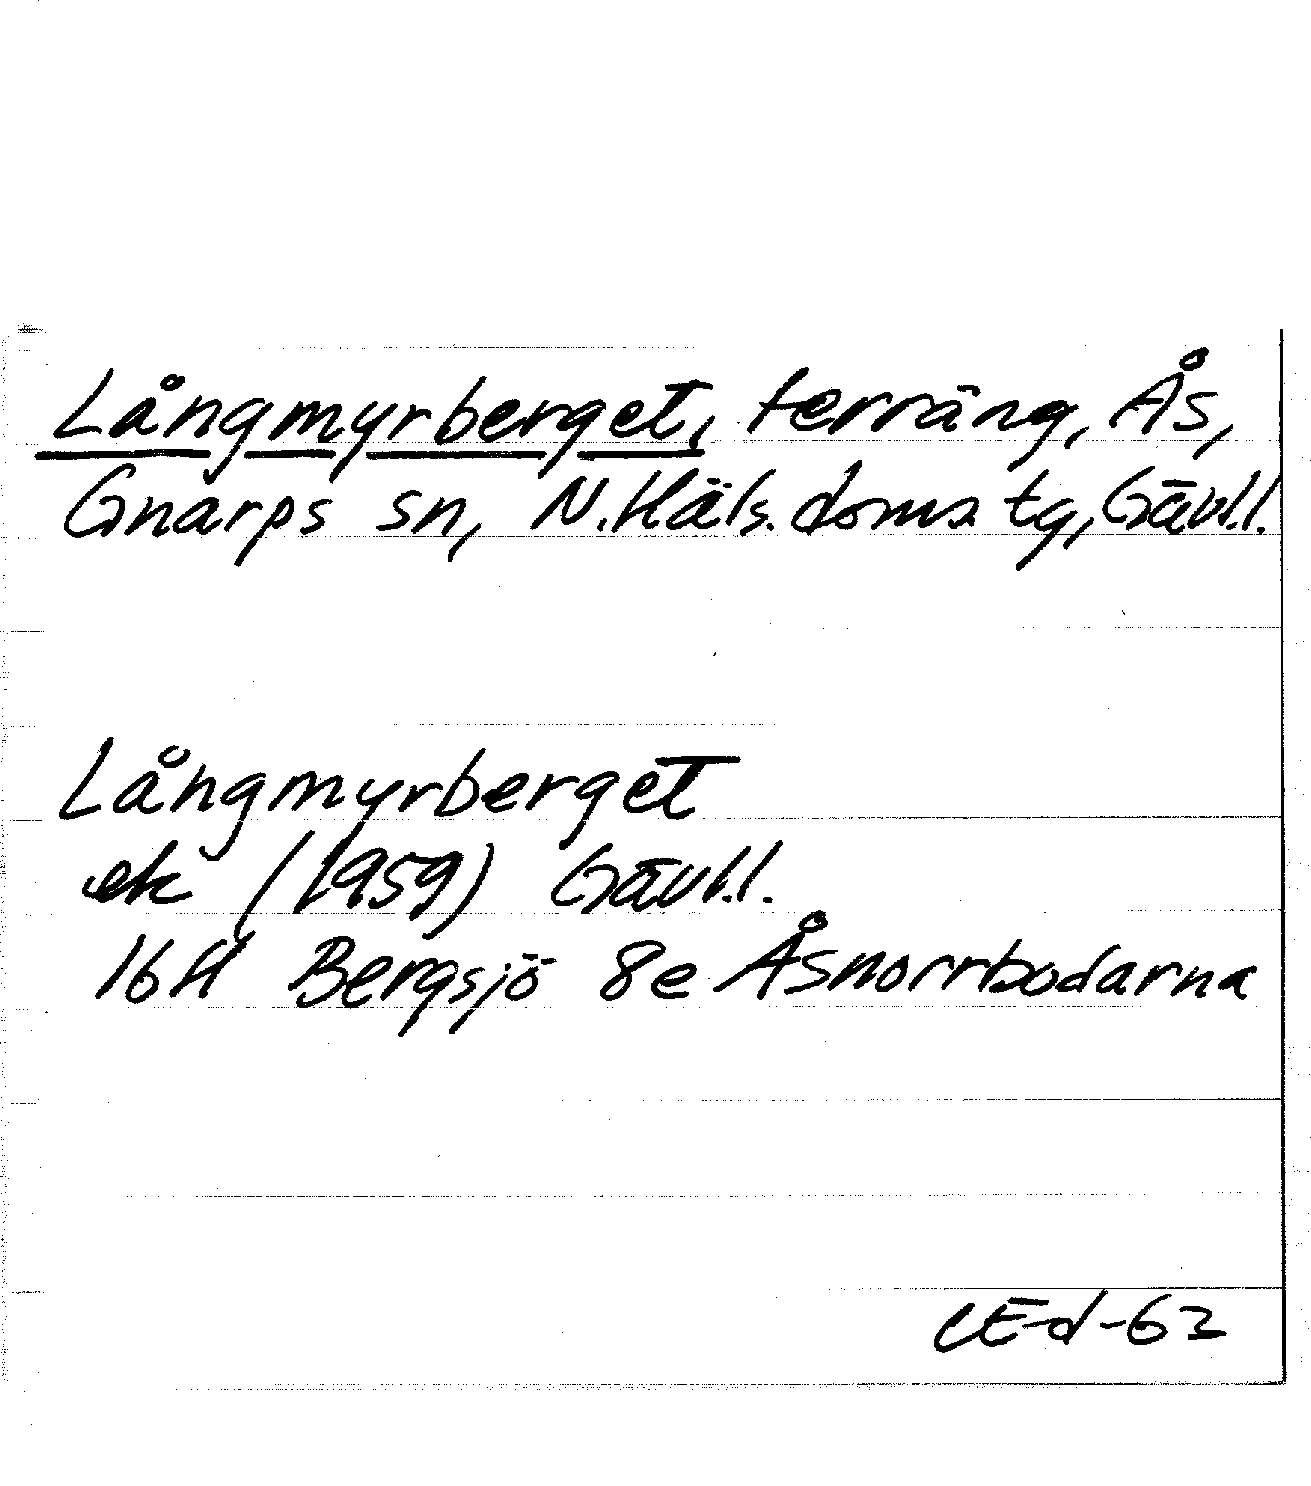 Långmyrberget, terräng, Ås,
Gnarps sn, N.Häls. doms tg, Gävl.l.
Långmyrberget
ek (1959) Gävl.l.
16H Bergsjö 8e Åsnorrbodarna
CEd-62